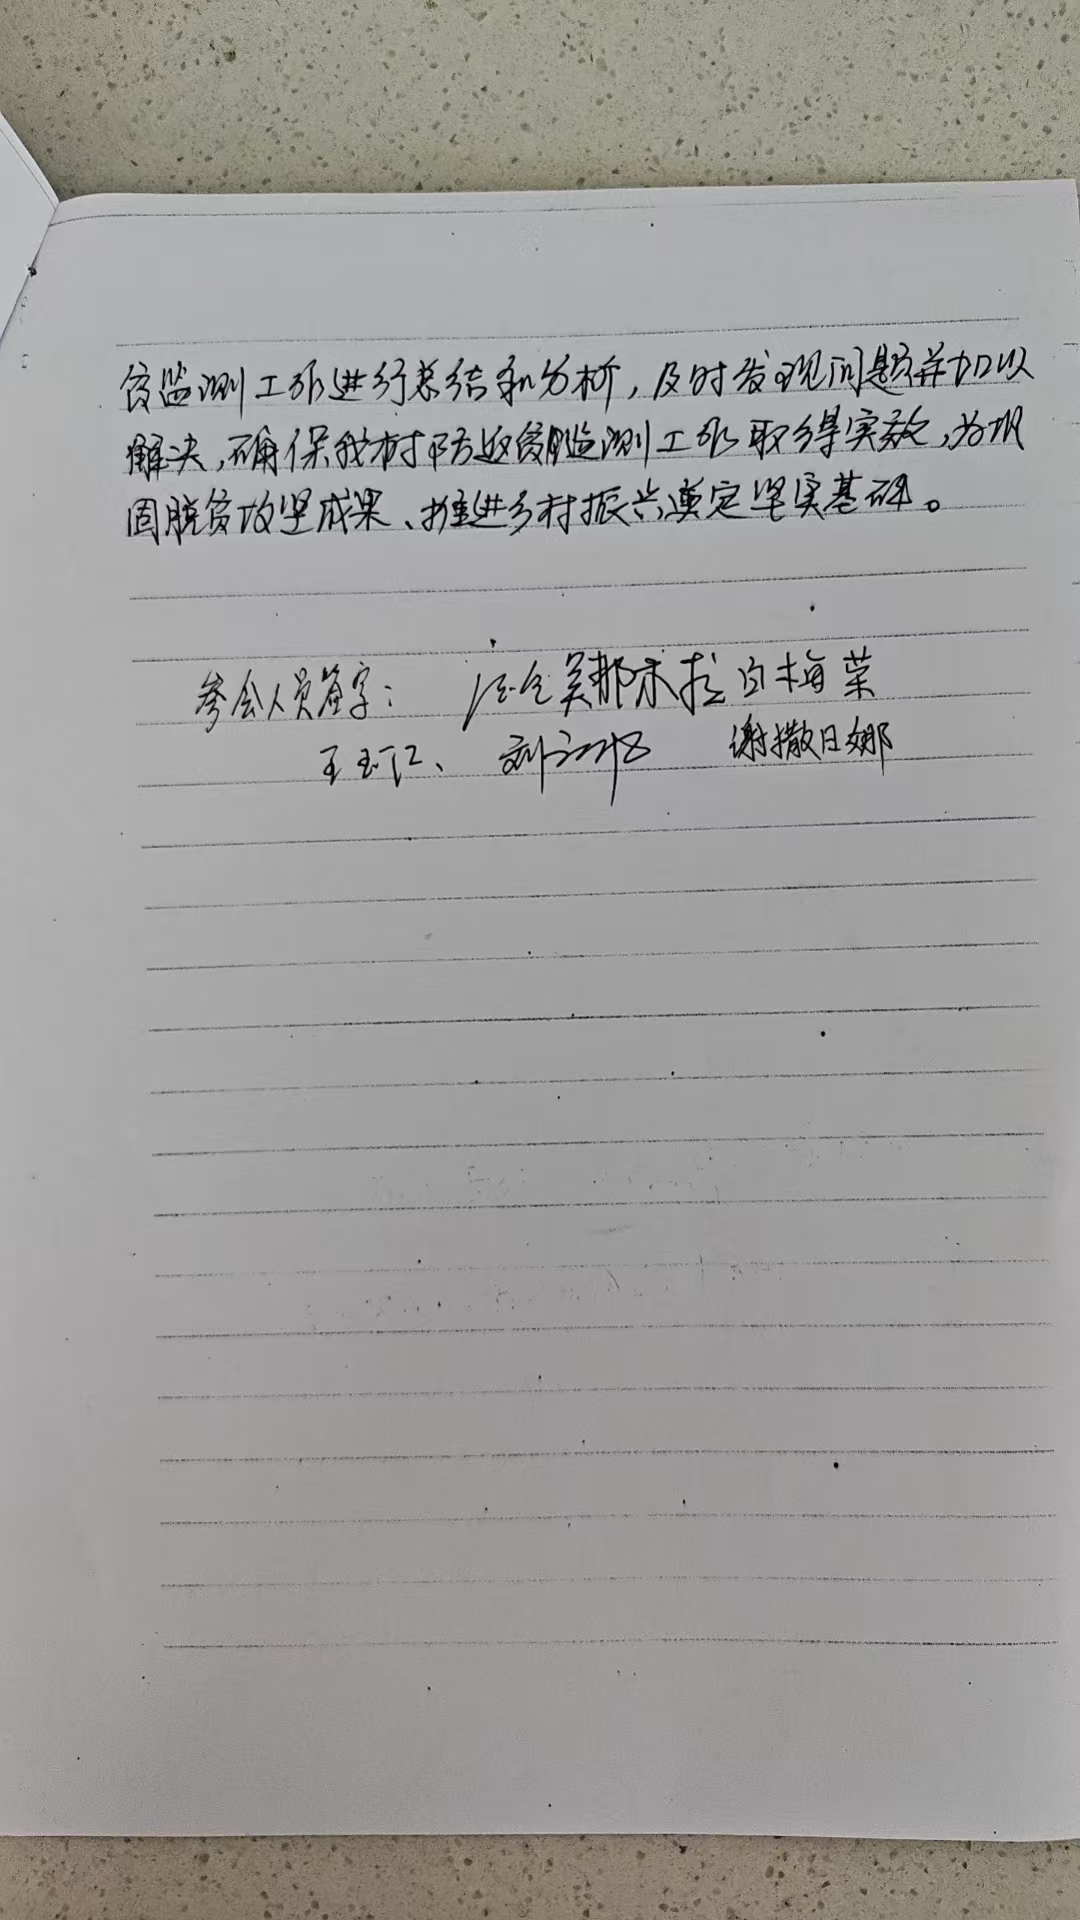 贫监测工作进行总结和分析,及时发现问题并加以
解决,确保我村防返贫监测工作取得实效,为巩
固脱贫攻坚成果、推进乡村振兴奠定坚实基础。
参会人员签字: 吴那木拉 白梅荣
王玉仁、 谢撒日娜